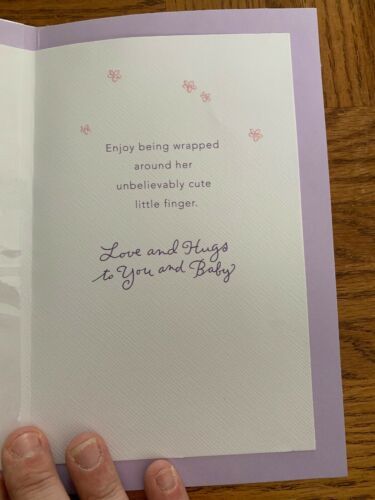 Enjoy being wrapped
around her
unbelievably cute
little finger.
Love and Hugs
to You and Baby